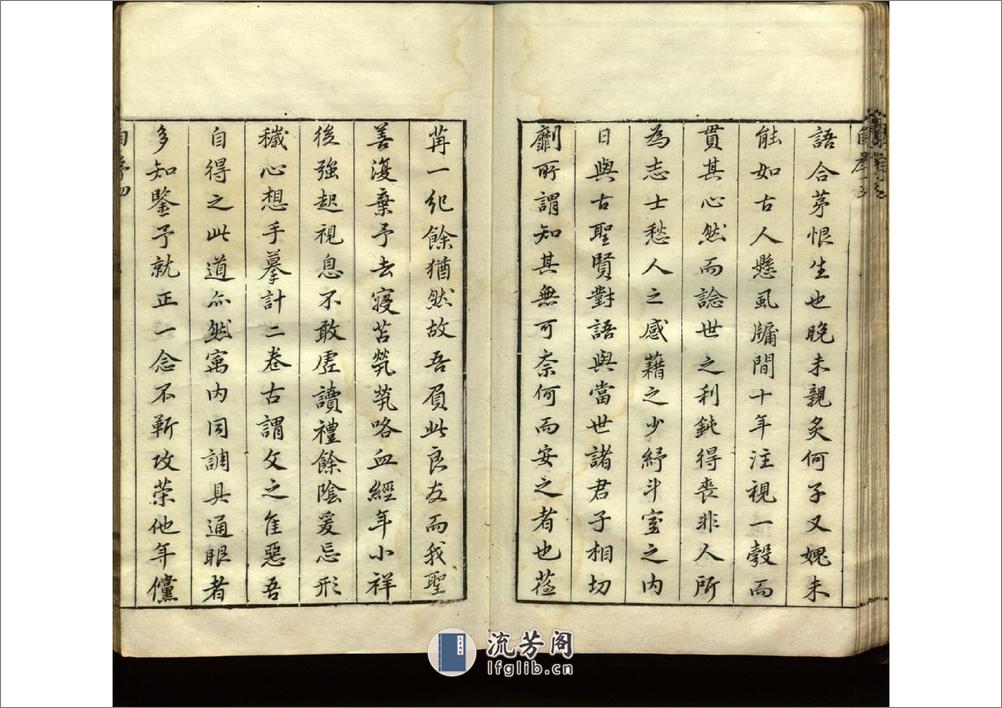 自序三
語合茅恨生也晚未親炙何子又媿未
能如古人懸虱牖間十年注視一轂而
貫其心然而諗世之利鈍得喪非人所
為志士愁人之感藉之少紓斗室之内
日與古聖賢對語與當世諸君子相切
劘所謂知其無可奈何而安之者也荏
苒一紀餘猶然故吾負此良友而我聖
善溘棄予去寢苫煢煢咯血經年小祥
後強起視息不敢虛讀禮餘陰爰忘形
穢心想手摹計二卷古謂文之佳惡吾
自得之此道亦然寓内同調具通眼者
多知鑒予就正一念不靳攻榮他年儻
自序四
流芳阁
lfglib.cn